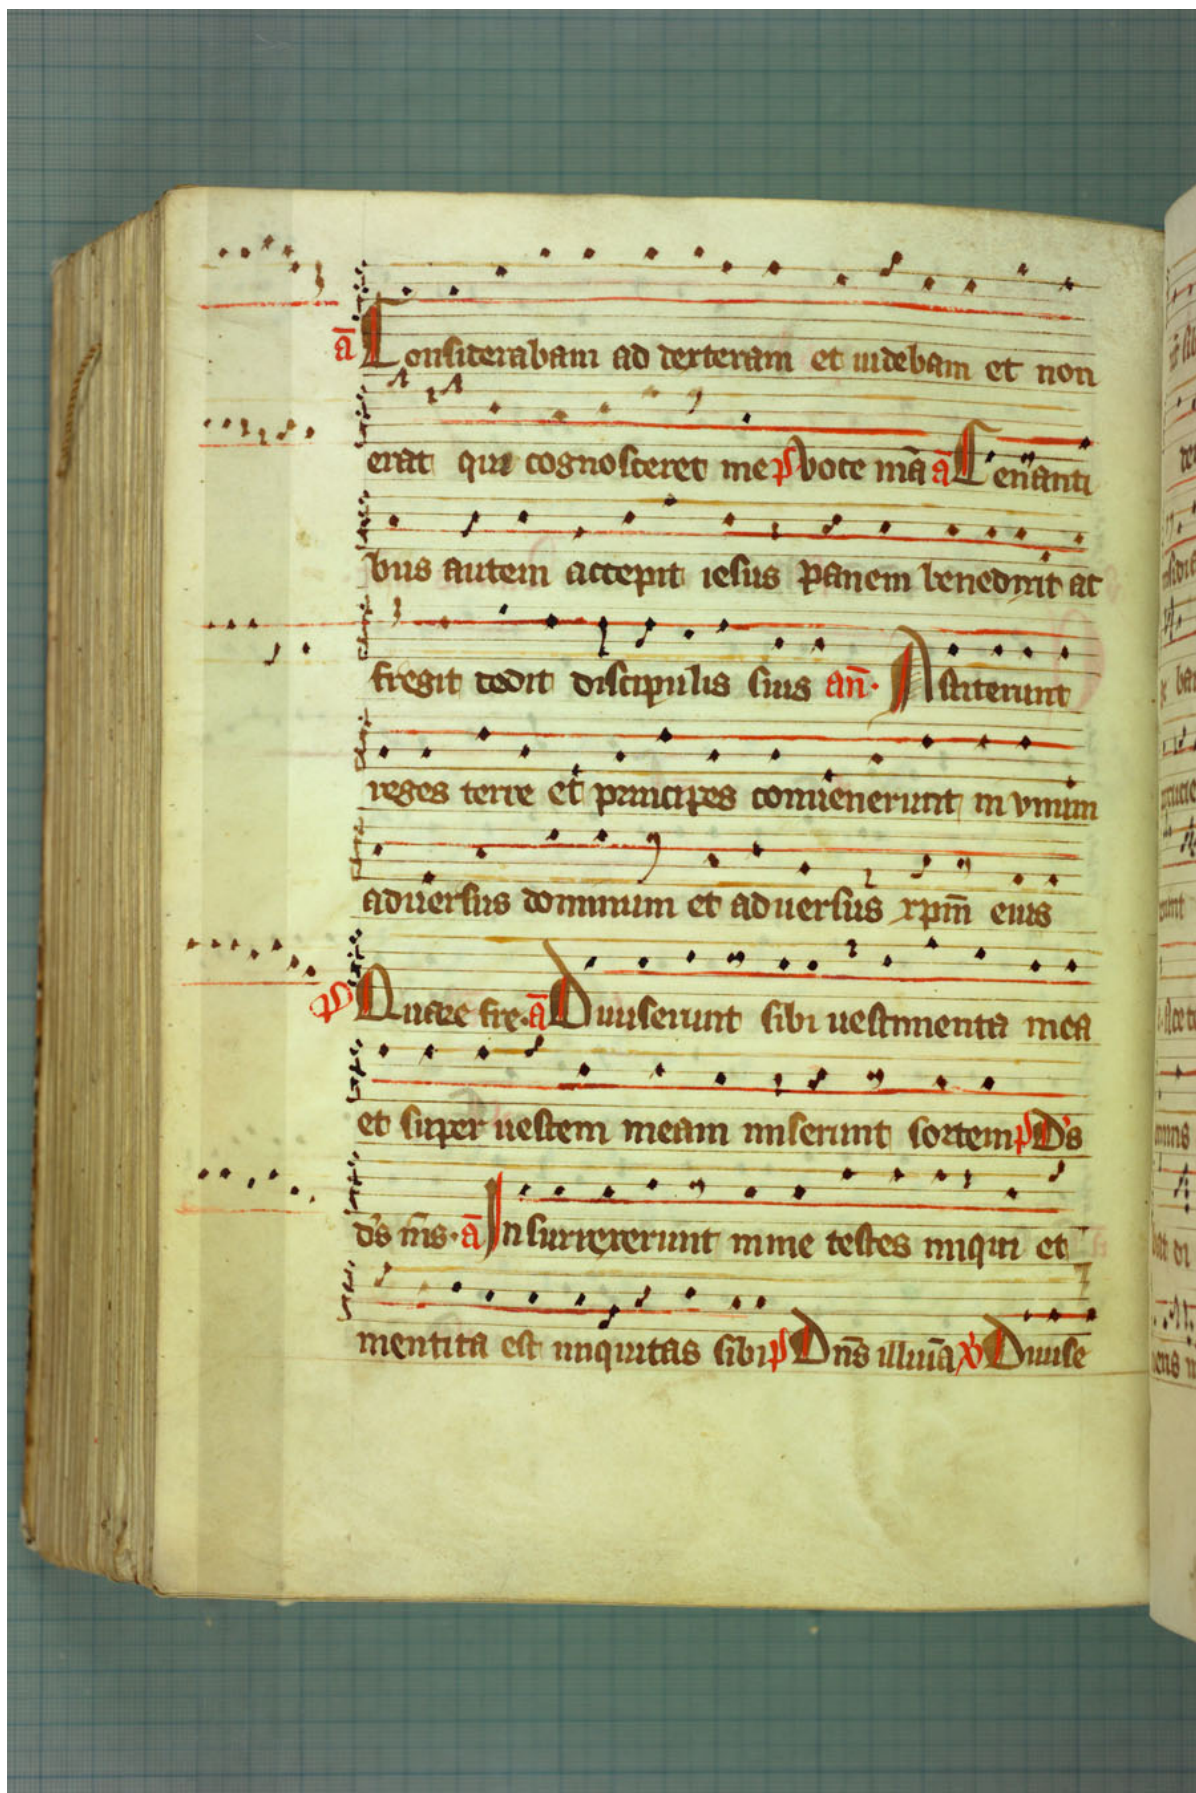 ā Considerabam ad dexteram et uidebam et non
erat qui cognosceret me p̄s Voce mā ā Cenanti
bus autem accepit iesus panem benedixit ac
fregit dedit discipulis suis an̄. Astiterunt
reges terre et principes conuenerunt in vnum
aduersus dominum et aduersus xp̄m eius
p̄s Quare fre. ā Diuiserunt sibi uestimenta mea
et super uestem meam miserunt sortem p̄s D's
d's m̄s. ā Insurrexerunt in me testes iniqui et
mentita est iniquitas sibi p̄s Dn̄s illuīa V Diuise